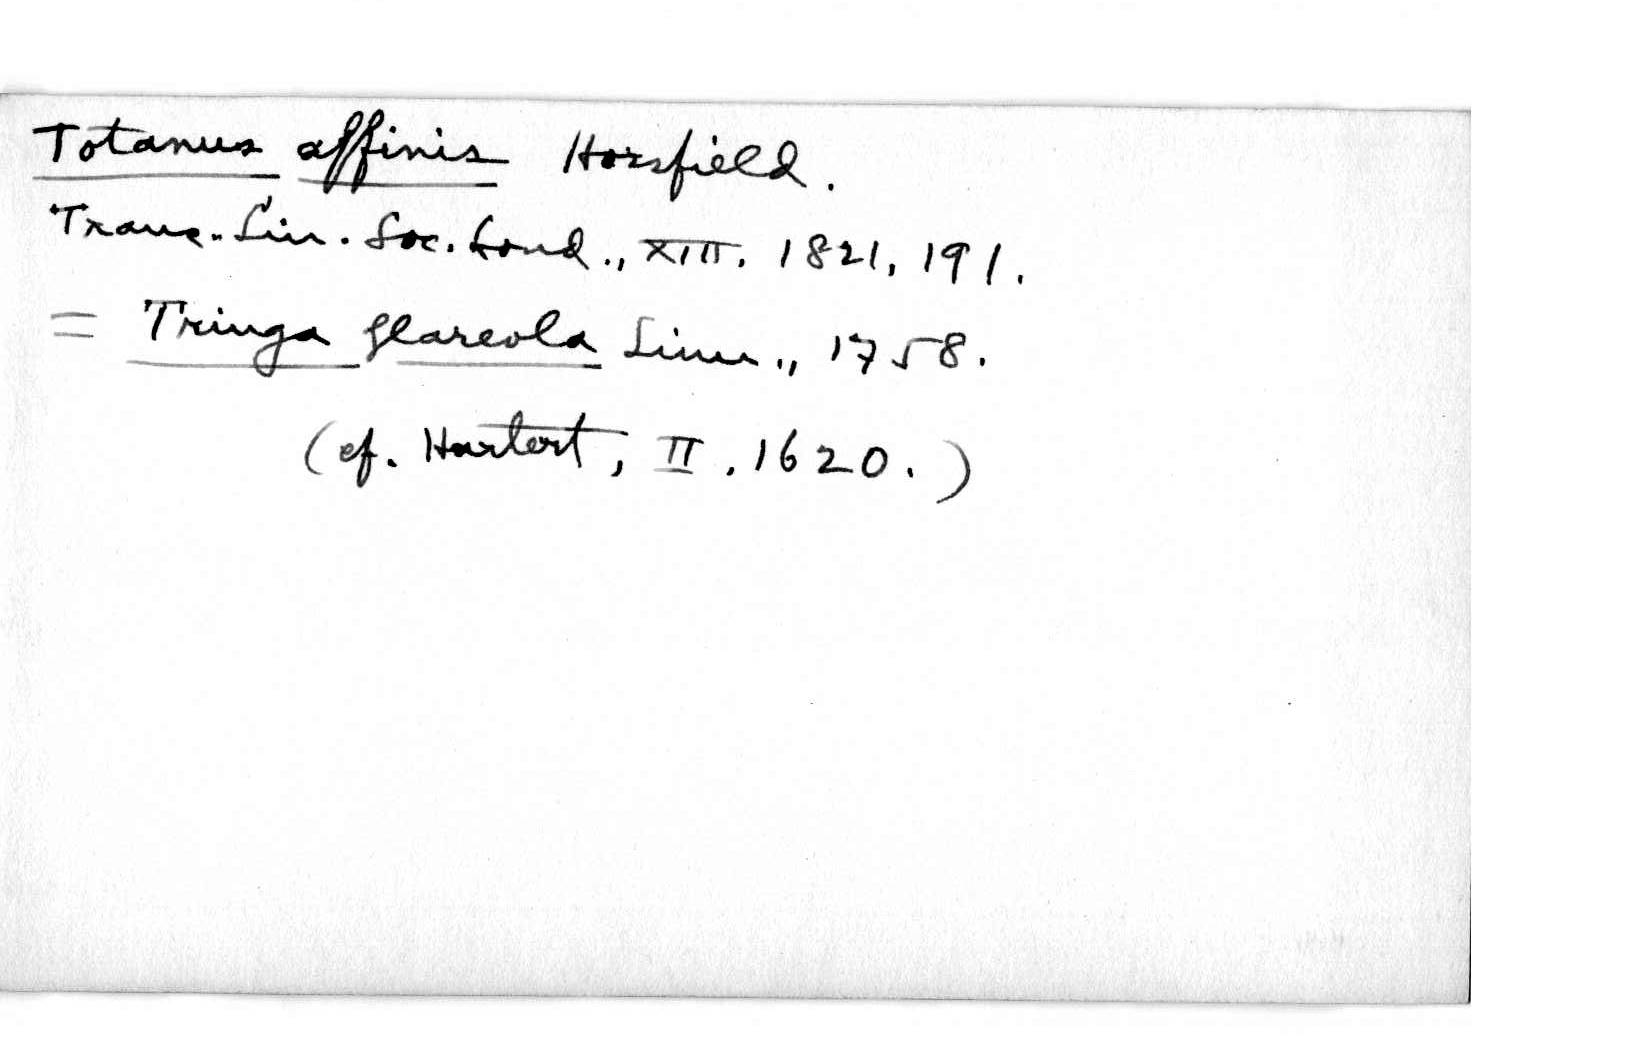 Totanus affinis Horsfield.
Trans. Lin. Soc. Lond., XIII, 1821, 191.
= Tringa glareola Linn., 1758.
(cf. Hartert, II, 1620.)